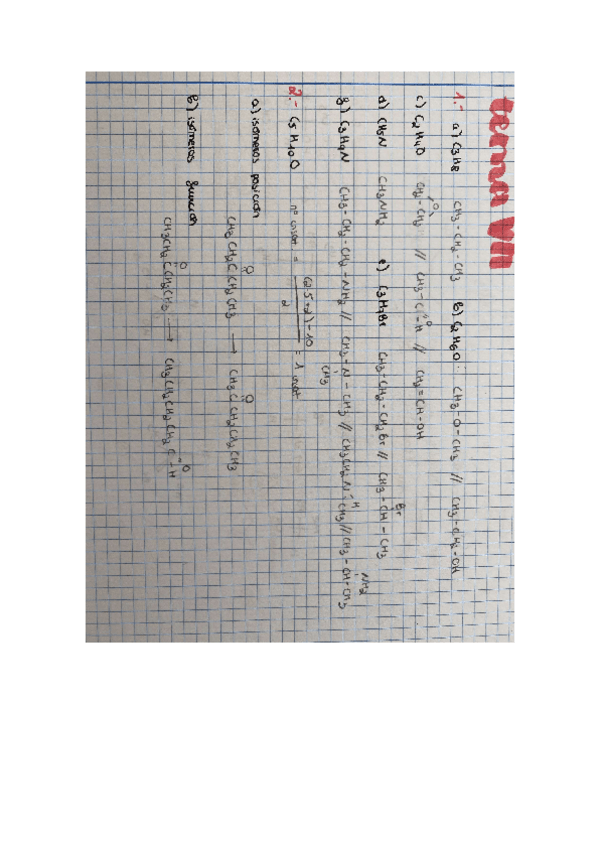 tema VIII
1.- a) C3H8 CH3-CH2-CH3 b) C2H6O: CH3-O-CH3 // CH3-CH2-OH
c) C2H4O CH2-CH2 O // CH3-C-H O // CH2=CH-OH
d) CH5N CH3NH2 e) C3H7Br CH3-CH2-CH2Br // CH3-CH-CH3 Br
g) C3H9N CH3-CH2-CH2-NH2 // CH3-N-CH3 CH3 // CH3CH2N-CH3 H // CH3-CH-CH3 NH2
2.- C5H10O nº insat. = (2·5+2)-10 / 2 = 1 insat
a) isómeros posición
CH3CH2CCH2CH3 O → CH3CCH2CH2CH3 O
b) isómeros función
CH3CH2CCH2CH3 O → CH3CH2CH2CH2C-H O